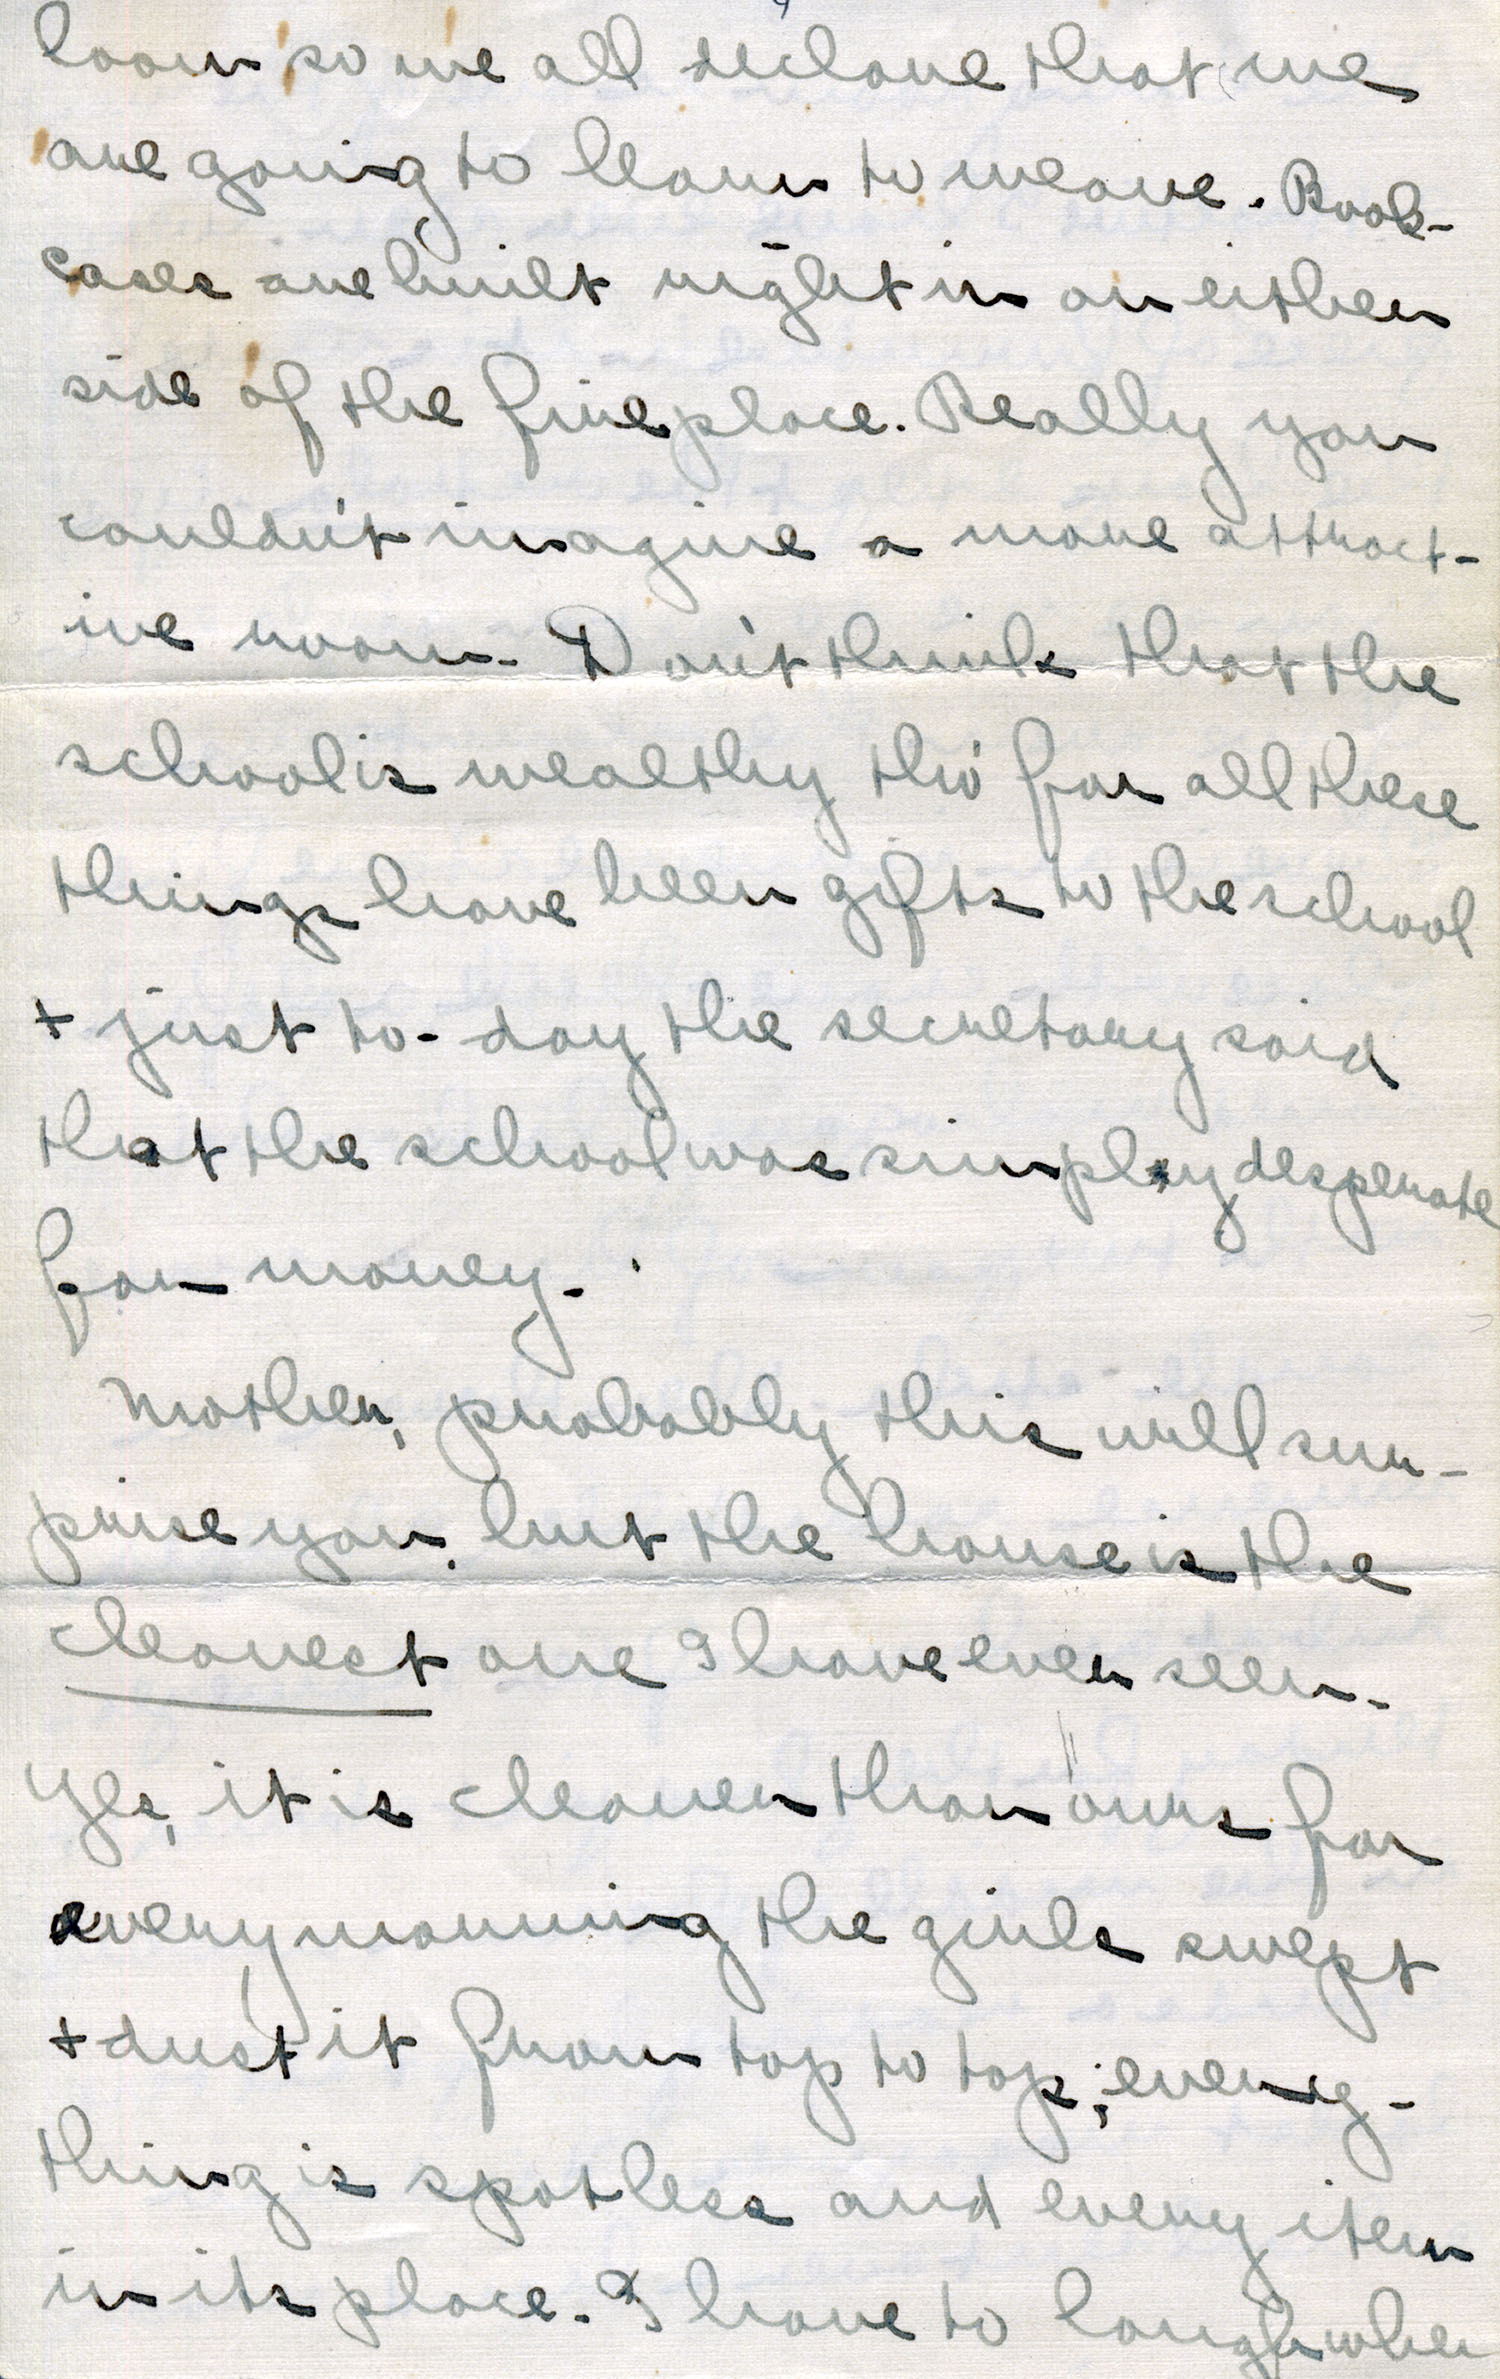 loom so we all declare that we
are going to learn to weave. Book-
cases are built right in on either
side of the fireplace. Really you
couldn't imagine a more attract-
ive room. Don't think that the
school is wealthy tho' for all these
things have been gifts to the school
+ just to-day the secretary said
that the school was simply desperate
for money.
Mother, probably this will sur-
prise you, but the house is the
cleanest one I have ever seen.
Yes, it is cleaner than ours for
every morning the girls swept
+ dust it from top to top; every-
thing is spotless and every item
in its place. I have to laugh when